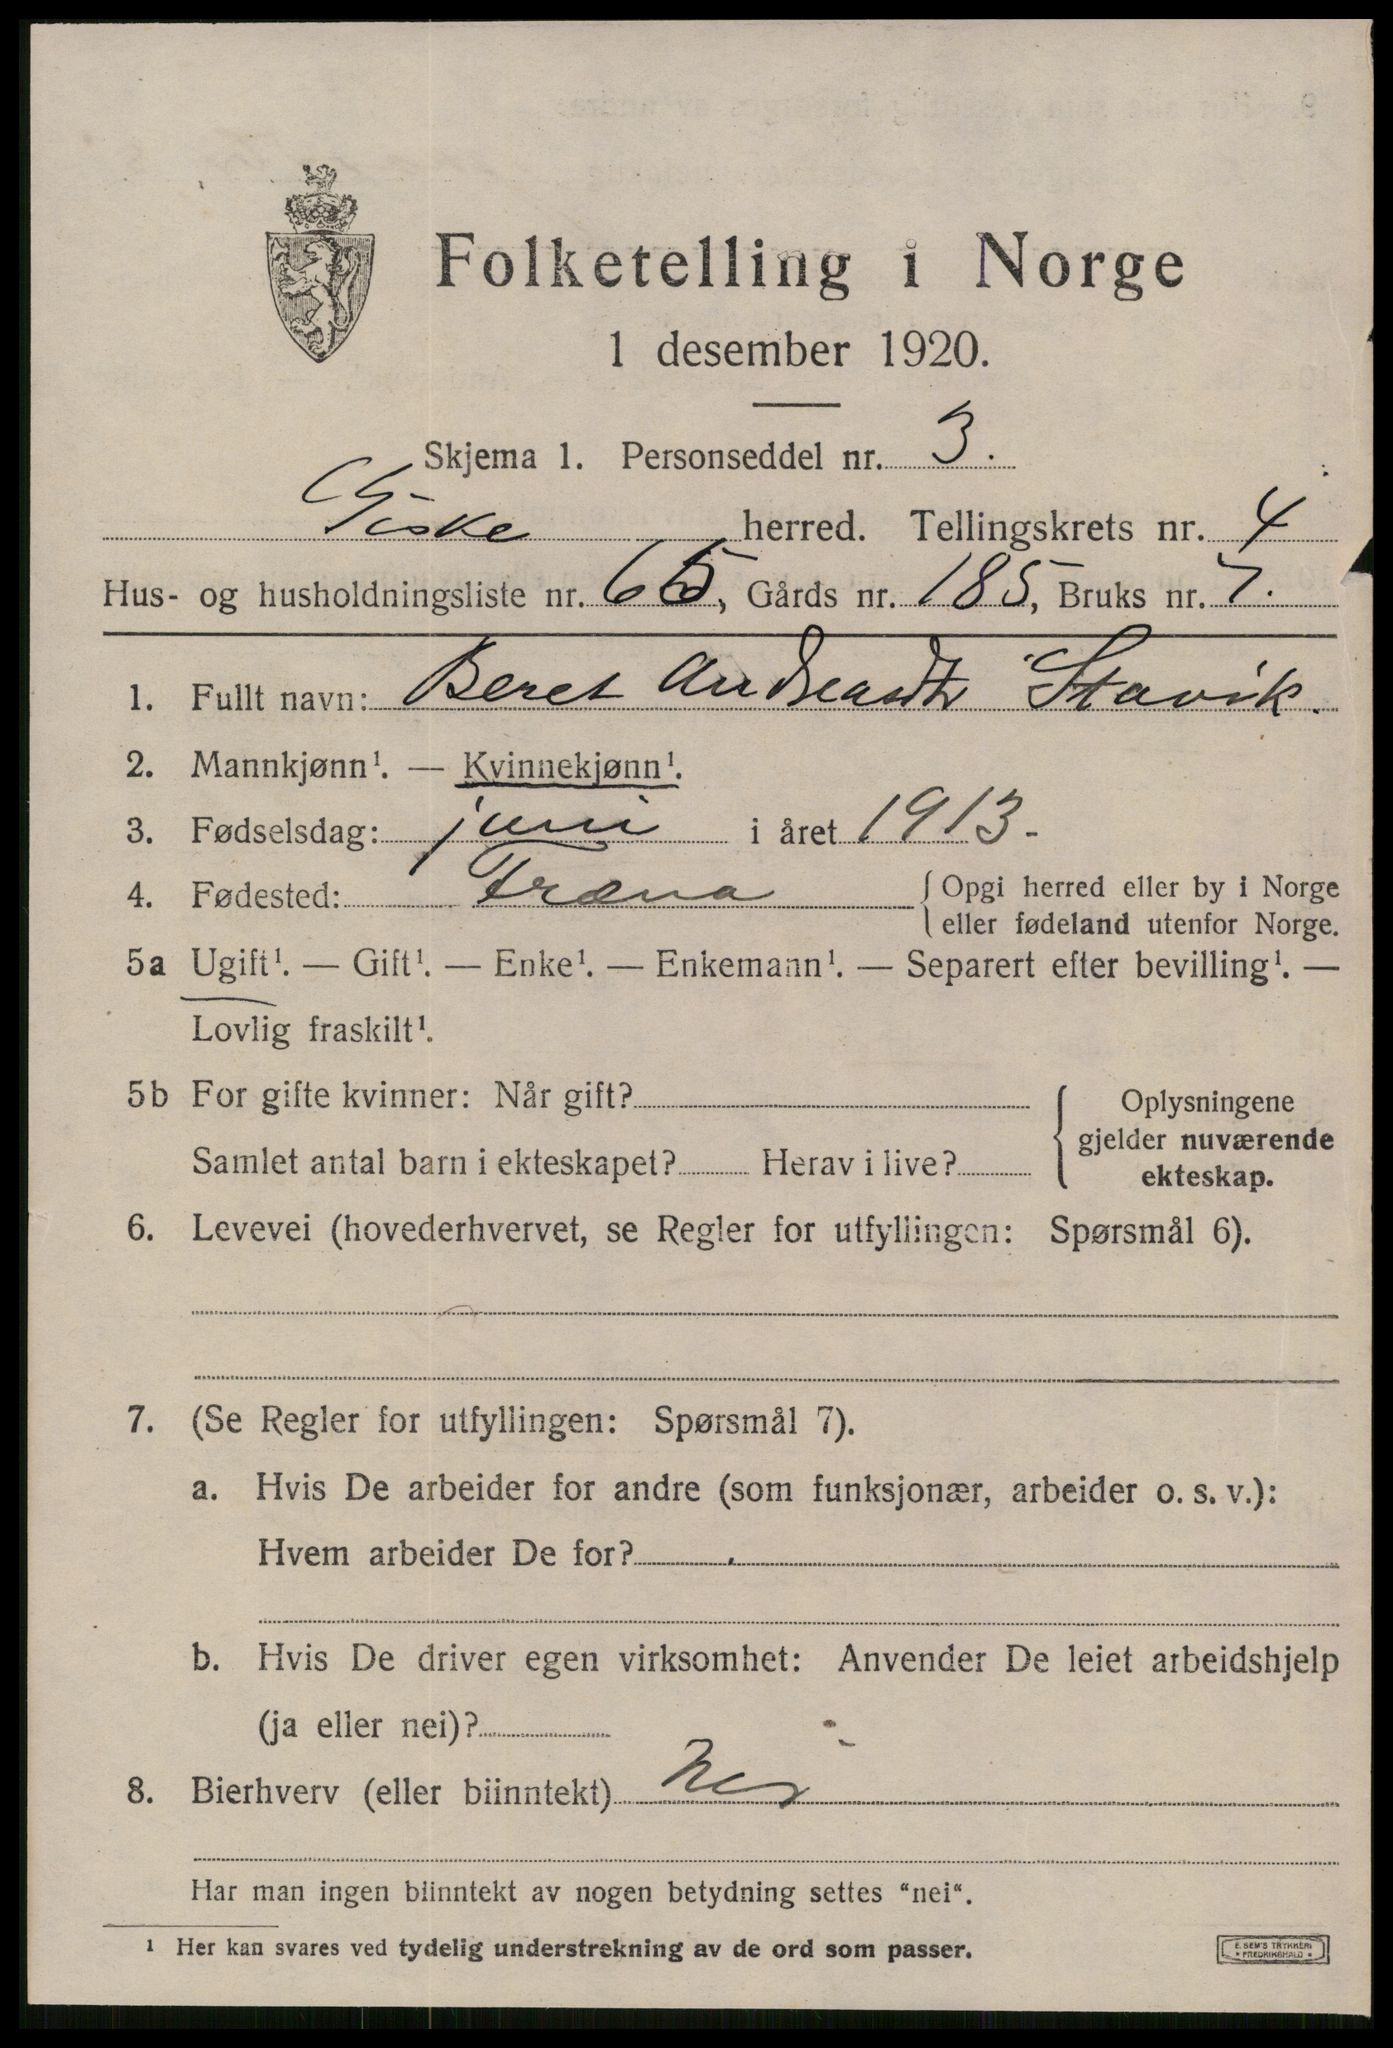 Folketelling i Norge
1 desember 1920.
Skjema 1. Personseddel nr. 3.
Giske herred. Tellingskrets nr. 4
Hus- og husholdningsliste nr. 65, Gårds nr. 185, Bruks nr. 7.
1. Fullt navn: Beret Andreasdtr Stavik.
2. Mannkjønn¹. — Kvinnekjønn¹.
3. Fødselsdag: juni i året 1913-
4. Fødested: Fræna { Opgi herred eller by i Norge
eller fødeland utenfor Norge.
5a Ugift¹. — Gift¹. — Enke¹. — Enkemann¹. — Separert efter bevilling¹. —
Lovlig fraskilt¹.
5b For gifte kvinner: Når gift?
Samlet antal barn i ekteskapet? Herav i live?
Oplysningene
gjelder nuværende
ekteskap.
6. Levevei (hovederhvervet, se Regler for utfyllingen: Spørsmål 6).
7. (Se Regler for utfyllingen: Spørsmål 7).
a. Hvis De arbeider for andre (som funksjonær, arbeider o. s. v.):
Hvem arbeider De for?
b. Hvis De driver egen virksomhet: Anvender De leiet arbeidshjelp
(ja eller nei)?
8. Bierhverv (eller biinntekt) Nei
Har man ingen biinntekt av nogen betydning settes “nei“.
¹ Her kan svares ved tydelig understrekning av de ord som passer.
E. SEM'S TRYKKERI
• FREDRIKSHALD •